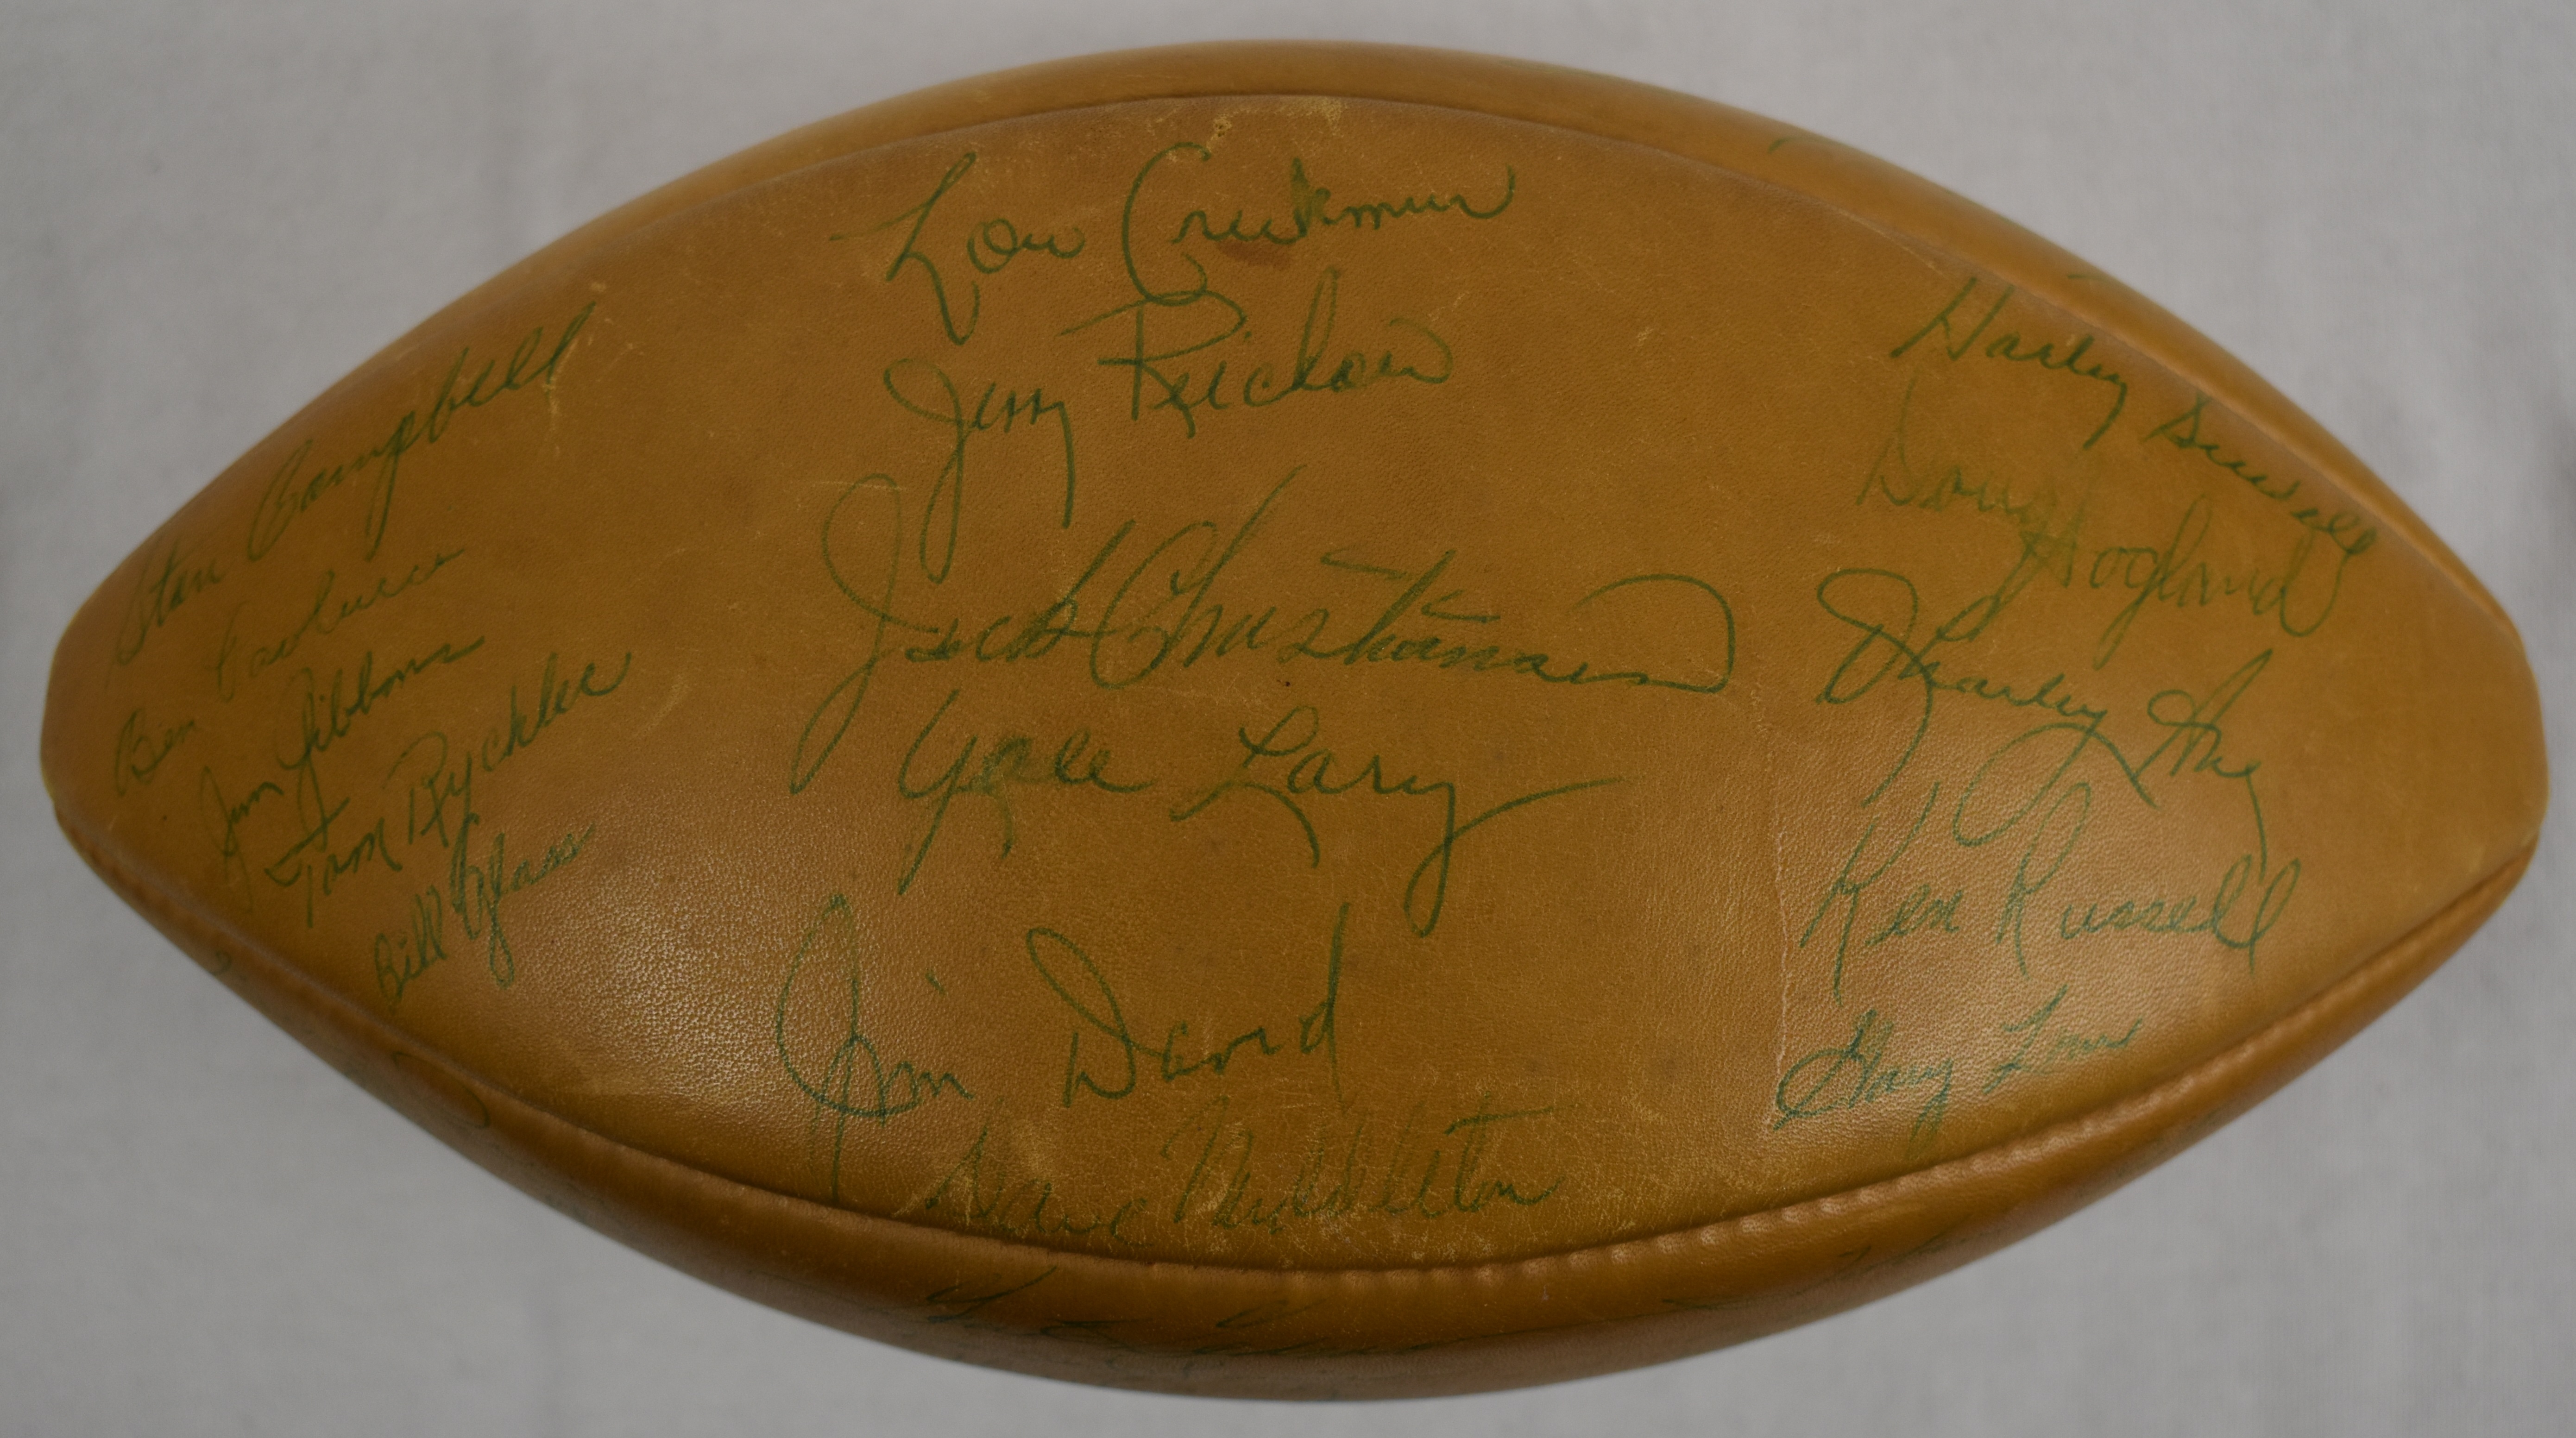 Lou Creekmur
Jerry Reichow
Jack Christiansen
Yale Lary
Jim David
Dave Middleton
Stan Campbell
Ben Paolucci
Jim Gibbons
Tom Rychlec
Bill Glass
Harley Sewell
Doug Hogland
Charley Ane
Ken Russell
Gary Lowe